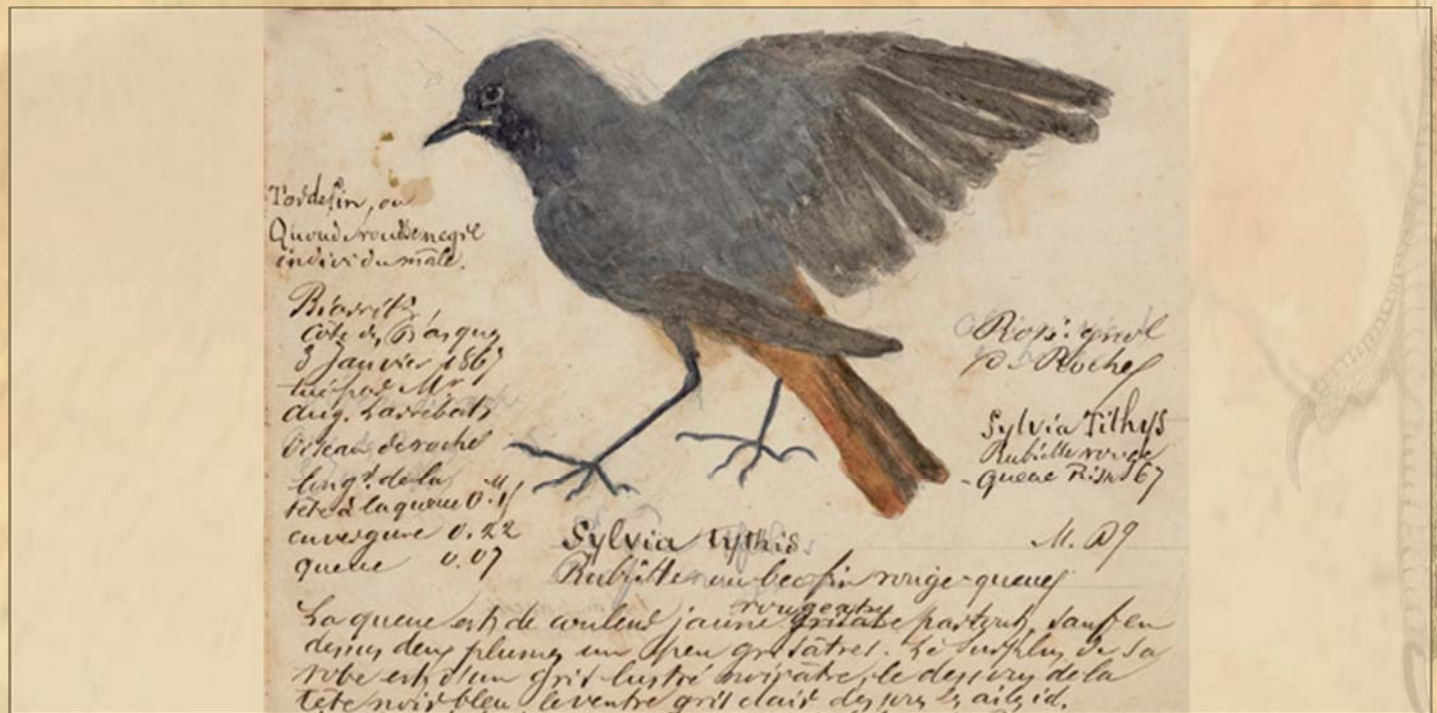 Tordefin, ou
individu mâle.
Biarritz
côte des Basques
3 Janvier 1867
tué par Mr
Aug. Larrebat
Oiseau de roche
longr. de la
tête à la queue 0.15
envergure 0.22
queue 0.07
Rossignol
de Roche
Sylvia Tithys
Rubiette rouge
queue Risso 67
Sylvia tythis
Rubiette ou becfin rouge-queue
rougeatre
La queue est de couleur jaune grisatre partout, sauf en
dessus deux plumes un peu grisâtres. Le surplus de sa
robe est d'un gris lustré noirâtre, le dessous de la
tête noir bleu le ventre gris clair dessous les ailes id.